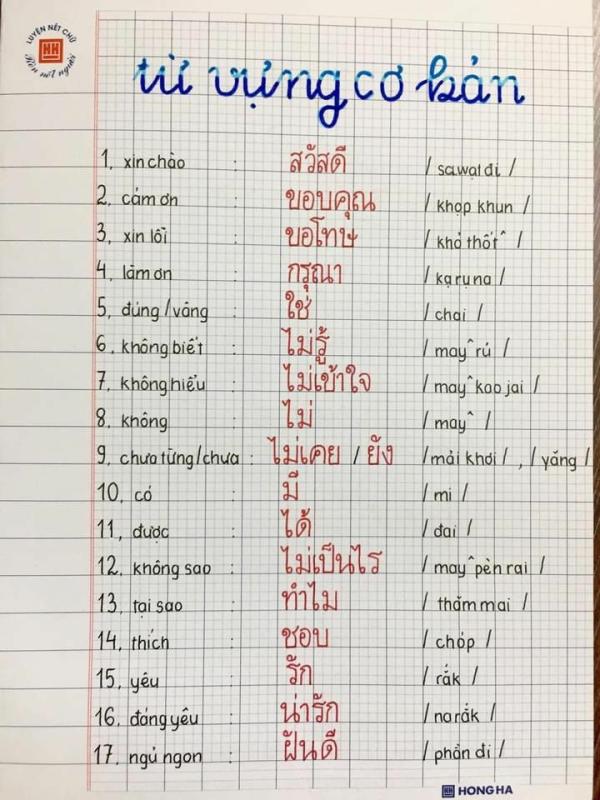 LUYỆN NÉT CHỮ
HH
Rèn nết người
từ vựng cơ bản
1, xin chào : สวัสดี / sawạt đi /
2, cảm ơn : ขอบคุณ / khọp khun /
3, xin lỗi : ขอโทษ / khỏ thốt^ /
4, làm ơn : กรุณา / kạ rụ na /
5, đúng / vâng : ใช่ / chai /
6, không biết : ไม่รู้ / may^ rú /
7, không hiểu : ไม่เข้าใจ / may^ kao jai /
8, không : ไม่ / may^ /
9, chưa từng/chưa : ไม่เคย / ยัง / mải khơi / , / yăng /
10, có : มี / mi /
11, được : ได้ / đai /
12, không sao : ไม่เป็นไร / may^ pèn rai /
13, tại sao : ทำไม / thăm mai /
14, thích : ชอบ / chóp /
15, yêu : รัก / rắk /
16, đáng yêu : น่ารัก / na rắk /
17, ngủ ngon : ฝันดี / phẳn đi /
HH HONG HA